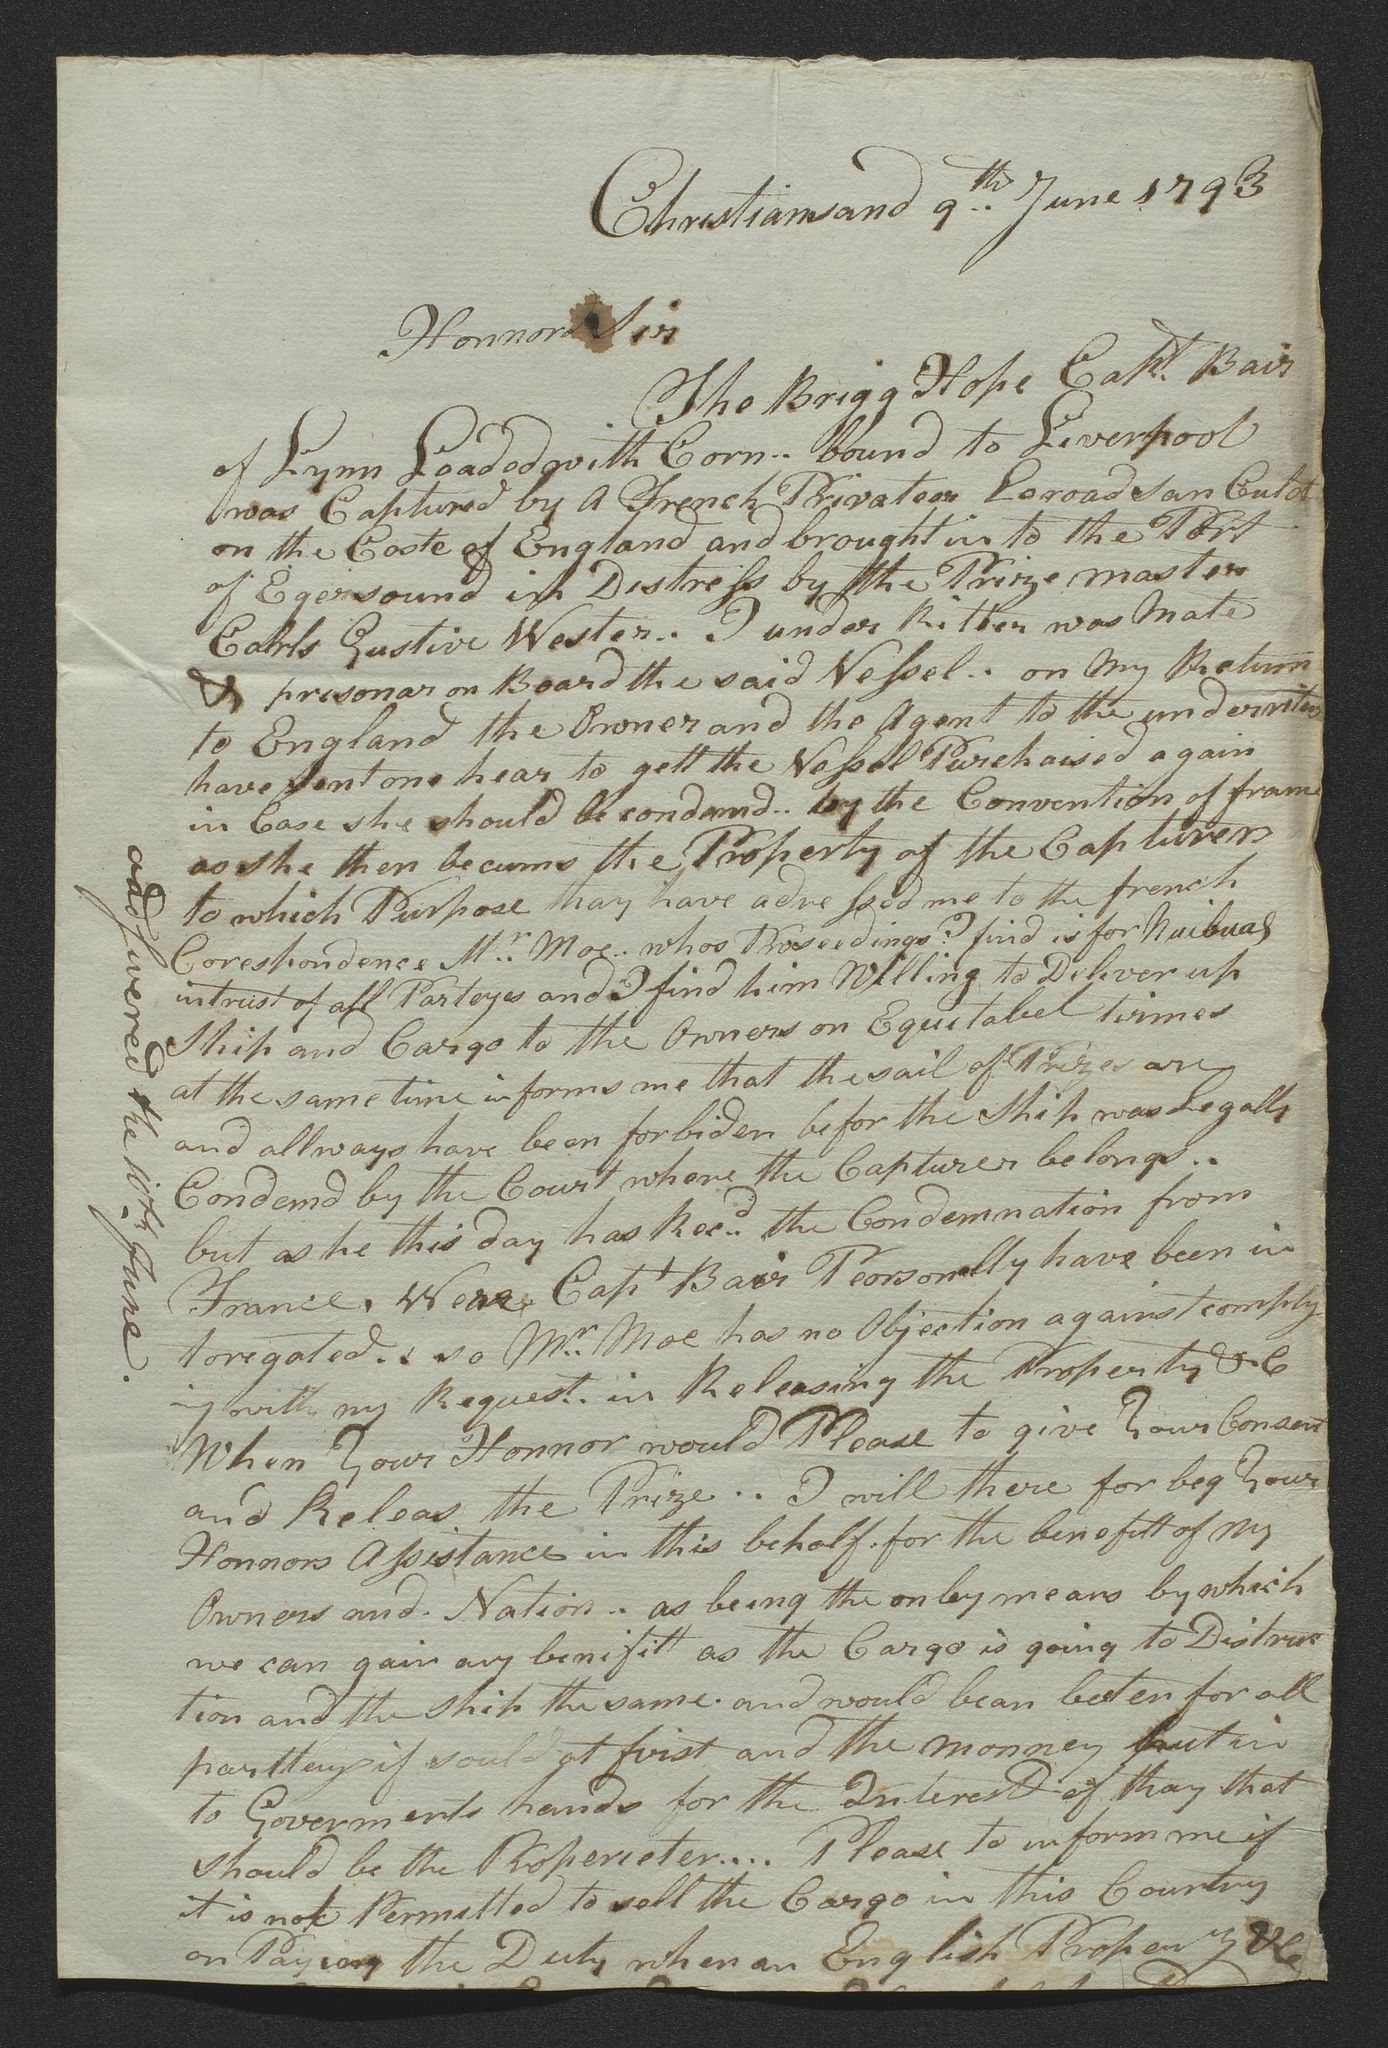 Christiansand 9th June 1793
Honnord Sir
The Brigg Hope Capt. Bair
of Lynn Loaded with Corn.. bound to Liverpool
was Captured by A French Privateer Leroad San Culot
on the Coste of England and brought in to the Port
of Egersound in Distress by the Prize master
Carls Gustive Wester.. I under Ritten was Mate
& prisonar on Board the said Vessel.. on My Return
to England the Owner and the Agent to the underriters
have sent me hear to gett the Vessel Purchaised again
in Case she should be condemd.. by the Convention of france
as she then becums the Property of the Capturers
to which Purpose thay have adressed me to the french
Corespondence Mr.. Moe.. whos Proseedings I find is for
intrust of all Parteyes and I find him Willing to Deliver up
Ship and Cargo to the Owners on Equetabel tirmes
at the same time informs me that the sail of Prizes are
and allways have been forbiden befor the Ship was Legally
Condemd by the Court where the Capturer belongs..
but as he this day has Recd. the Condemnation from
France. Were Capt Bair Pearsonally have been in
toregated.. so Mr.. Moe has no Objection against comply
ing with my Request.. in Releasing the Property &c
When Your Honnor would Please to give Your Consent
and Releas the Prize.. I will there for beg Your
Honnors Assistance in this behalf. for the benefitt of My
Owners and. Nation.. as being the onley means by which
we can gain any benifitt as the Cargo is going to Distruc
tion and the Ship the same. and would bean better for all
parttey if sould at first and the monney put in
to Goverments hands for the Interest of thay that
should be the Properieter.... Please to inform me if
it is not Permitted to sell the Cargo in this Country
on Paying the Duty when an English Property &c
answered the 10th June.